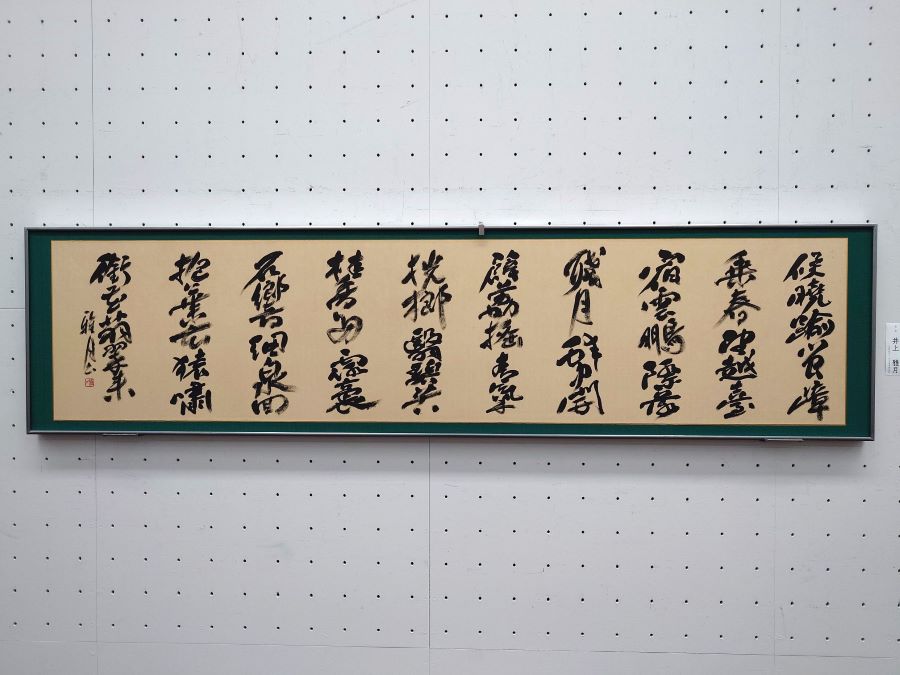 候曉踰閩嶂
乘春望越臺
宿雲鵬際落
殘月蚌中開
薜荔搖青氣
桄榔翳碧苔
桂香多露裛
石響細泉回
抱葉玄猿嘯
銜花翡翠來
雅月
井上 雅月